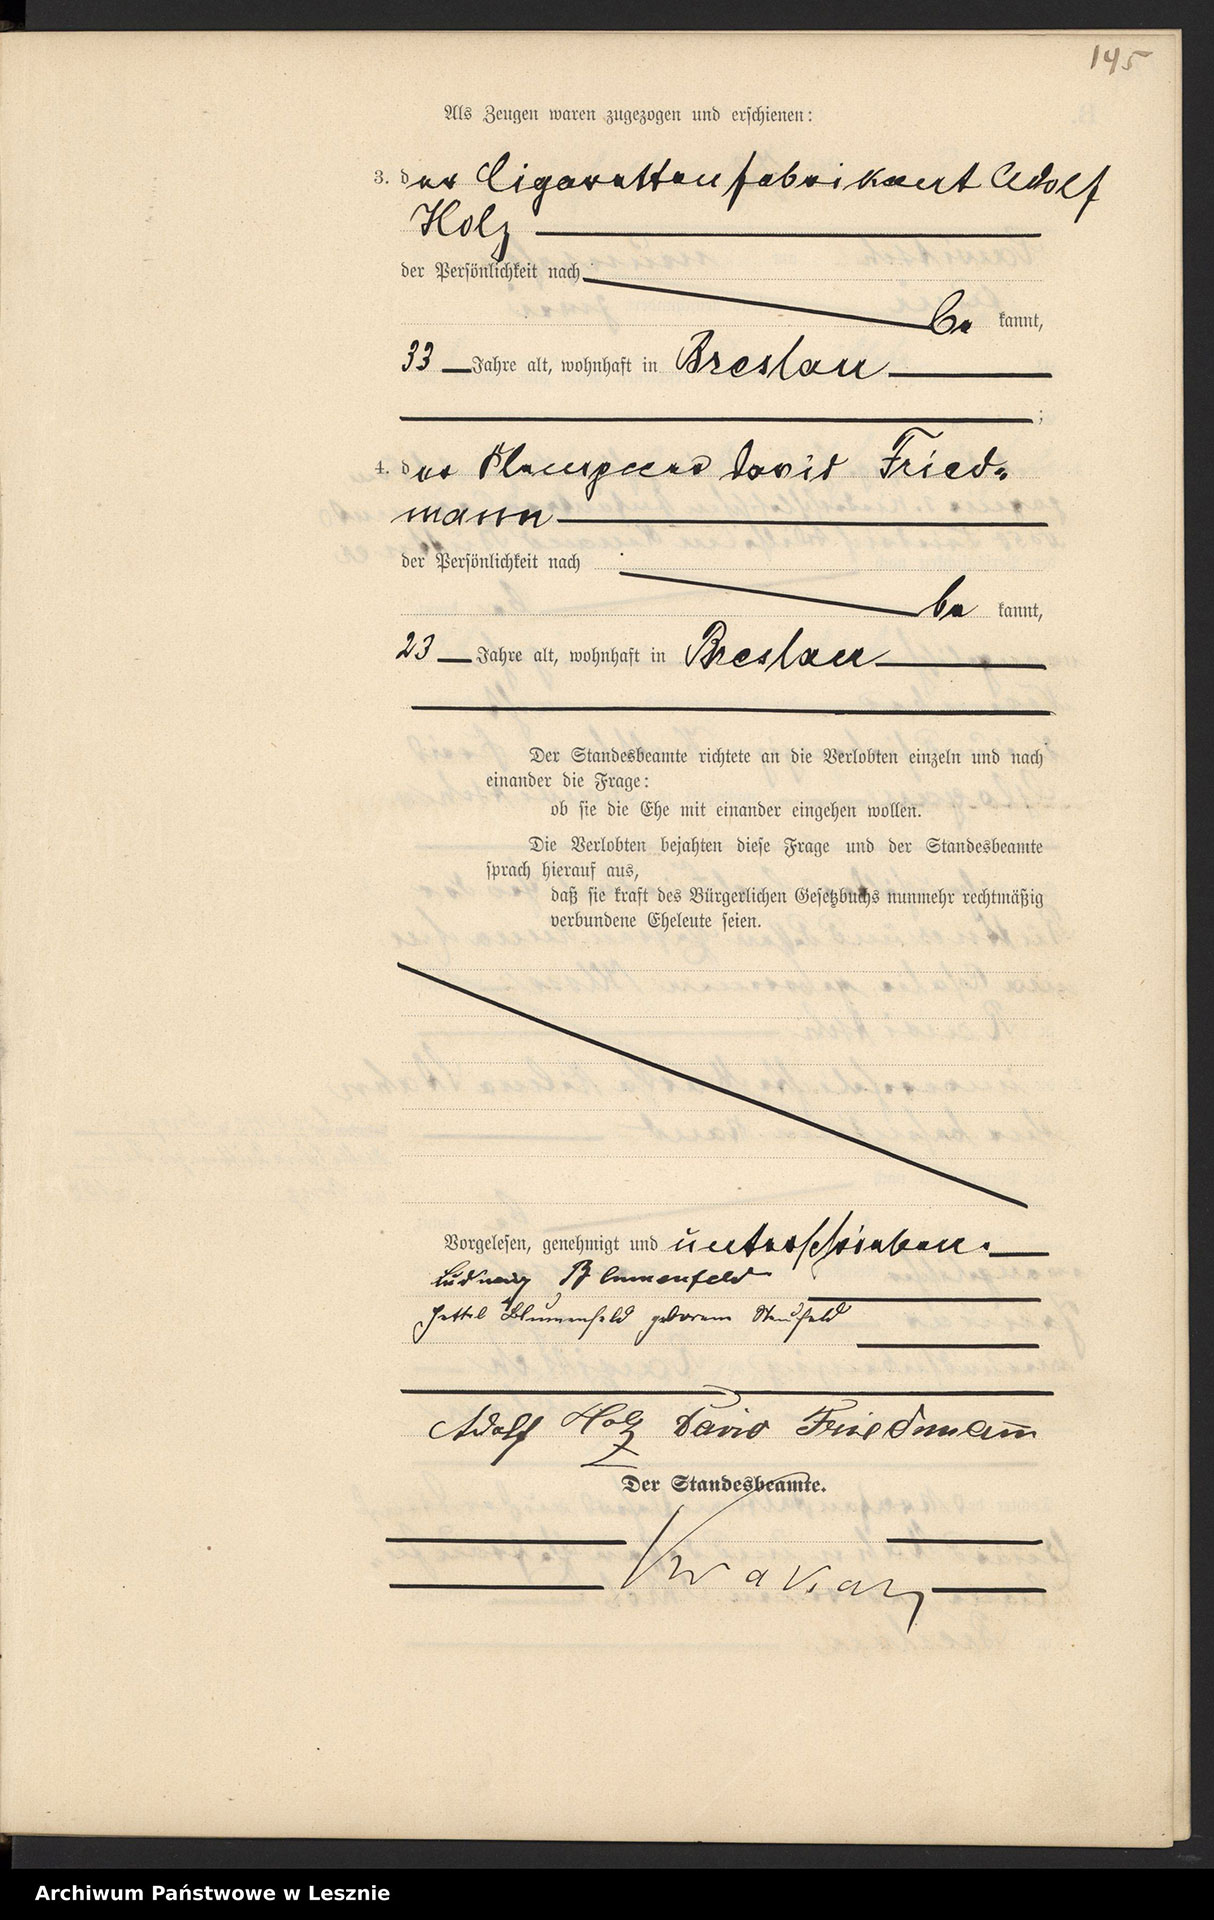 145
Als Zeugen waren zugezogen und erschienen:
3. der Cigarettenfabrikant Adolf
Holz
der Persönlichkeit nach
be kannt,
33 Jahre alt, wohnhaft in Breslau
;
4. der Klempner David Fried-
mann
der Persönlichkeit nach
be kannt,
23 Jahre alt, wohnhaft in Breslau
Der Standesbeamte richtete an die Verlobten einzeln und nach
einander die Frage:
ob sie die Ehe mit einander eingehen wollen.
Die Verlobten bejahten diese Frage und der Standesbeamte
sprach hierauf aus,
daß sie kraft des Bürgerlichen Gesetzbuchs nunmehr rechtmäßig
verbundene Eheleute seien.
Vorgelesen, genehmigt und unterschrieben.
Ludwig Blumenfeld
Blumenfeld geborene
Adolf Holz David Friedmann
Der Standesbeamte.
Archiwum Państwowe w Lesznie